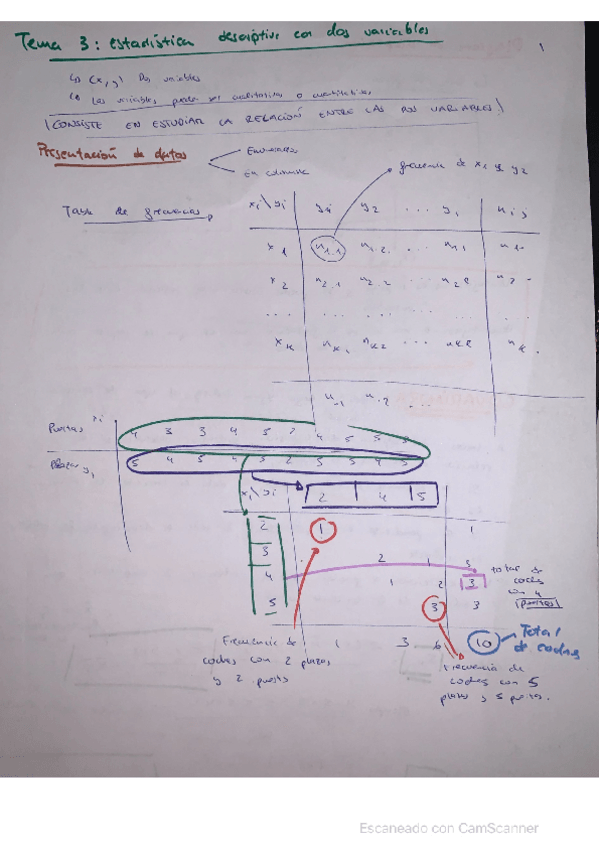 Tema 3: estadística descriptiva con dos variables
1
(x, y) Dos variables
Las variables pueden ser cualitativas o cuantitativas
¡CONSISTE EN ESTUDIAR LA RELACIÓN ENTRE LAS DOS VARIABLES!
Presentación de datos
Enumerados
en columna
frecuencia de x1 y y2
Tabla de frecuencias
xi\yi y1 y2 ... yj ni,j
x1 n1.1 n1.2 ... n1j n1.
x2 n2.1 n2.2 ... n2l n2.
... ... ... ...
xk nk1 nk2 ... nkl nk.
n.1 n.2 ...
Puertas xi 4 3 3 4 5 2 4 5 5 3
Plazas yi 5 4 5 4 5 2 5 5 4 5
xi\yi 2 4 5
2 1 1
3 2 1 3
4 1 2 3
5 3 3
total de coches con 4 puertas
1 3 6 10
Total de coches
Frecuencia de coches con 2 plazas y 2 puertas
Frecuencia de coches con 5 plazas y 5 puertas.
Escaneado con CamScanner